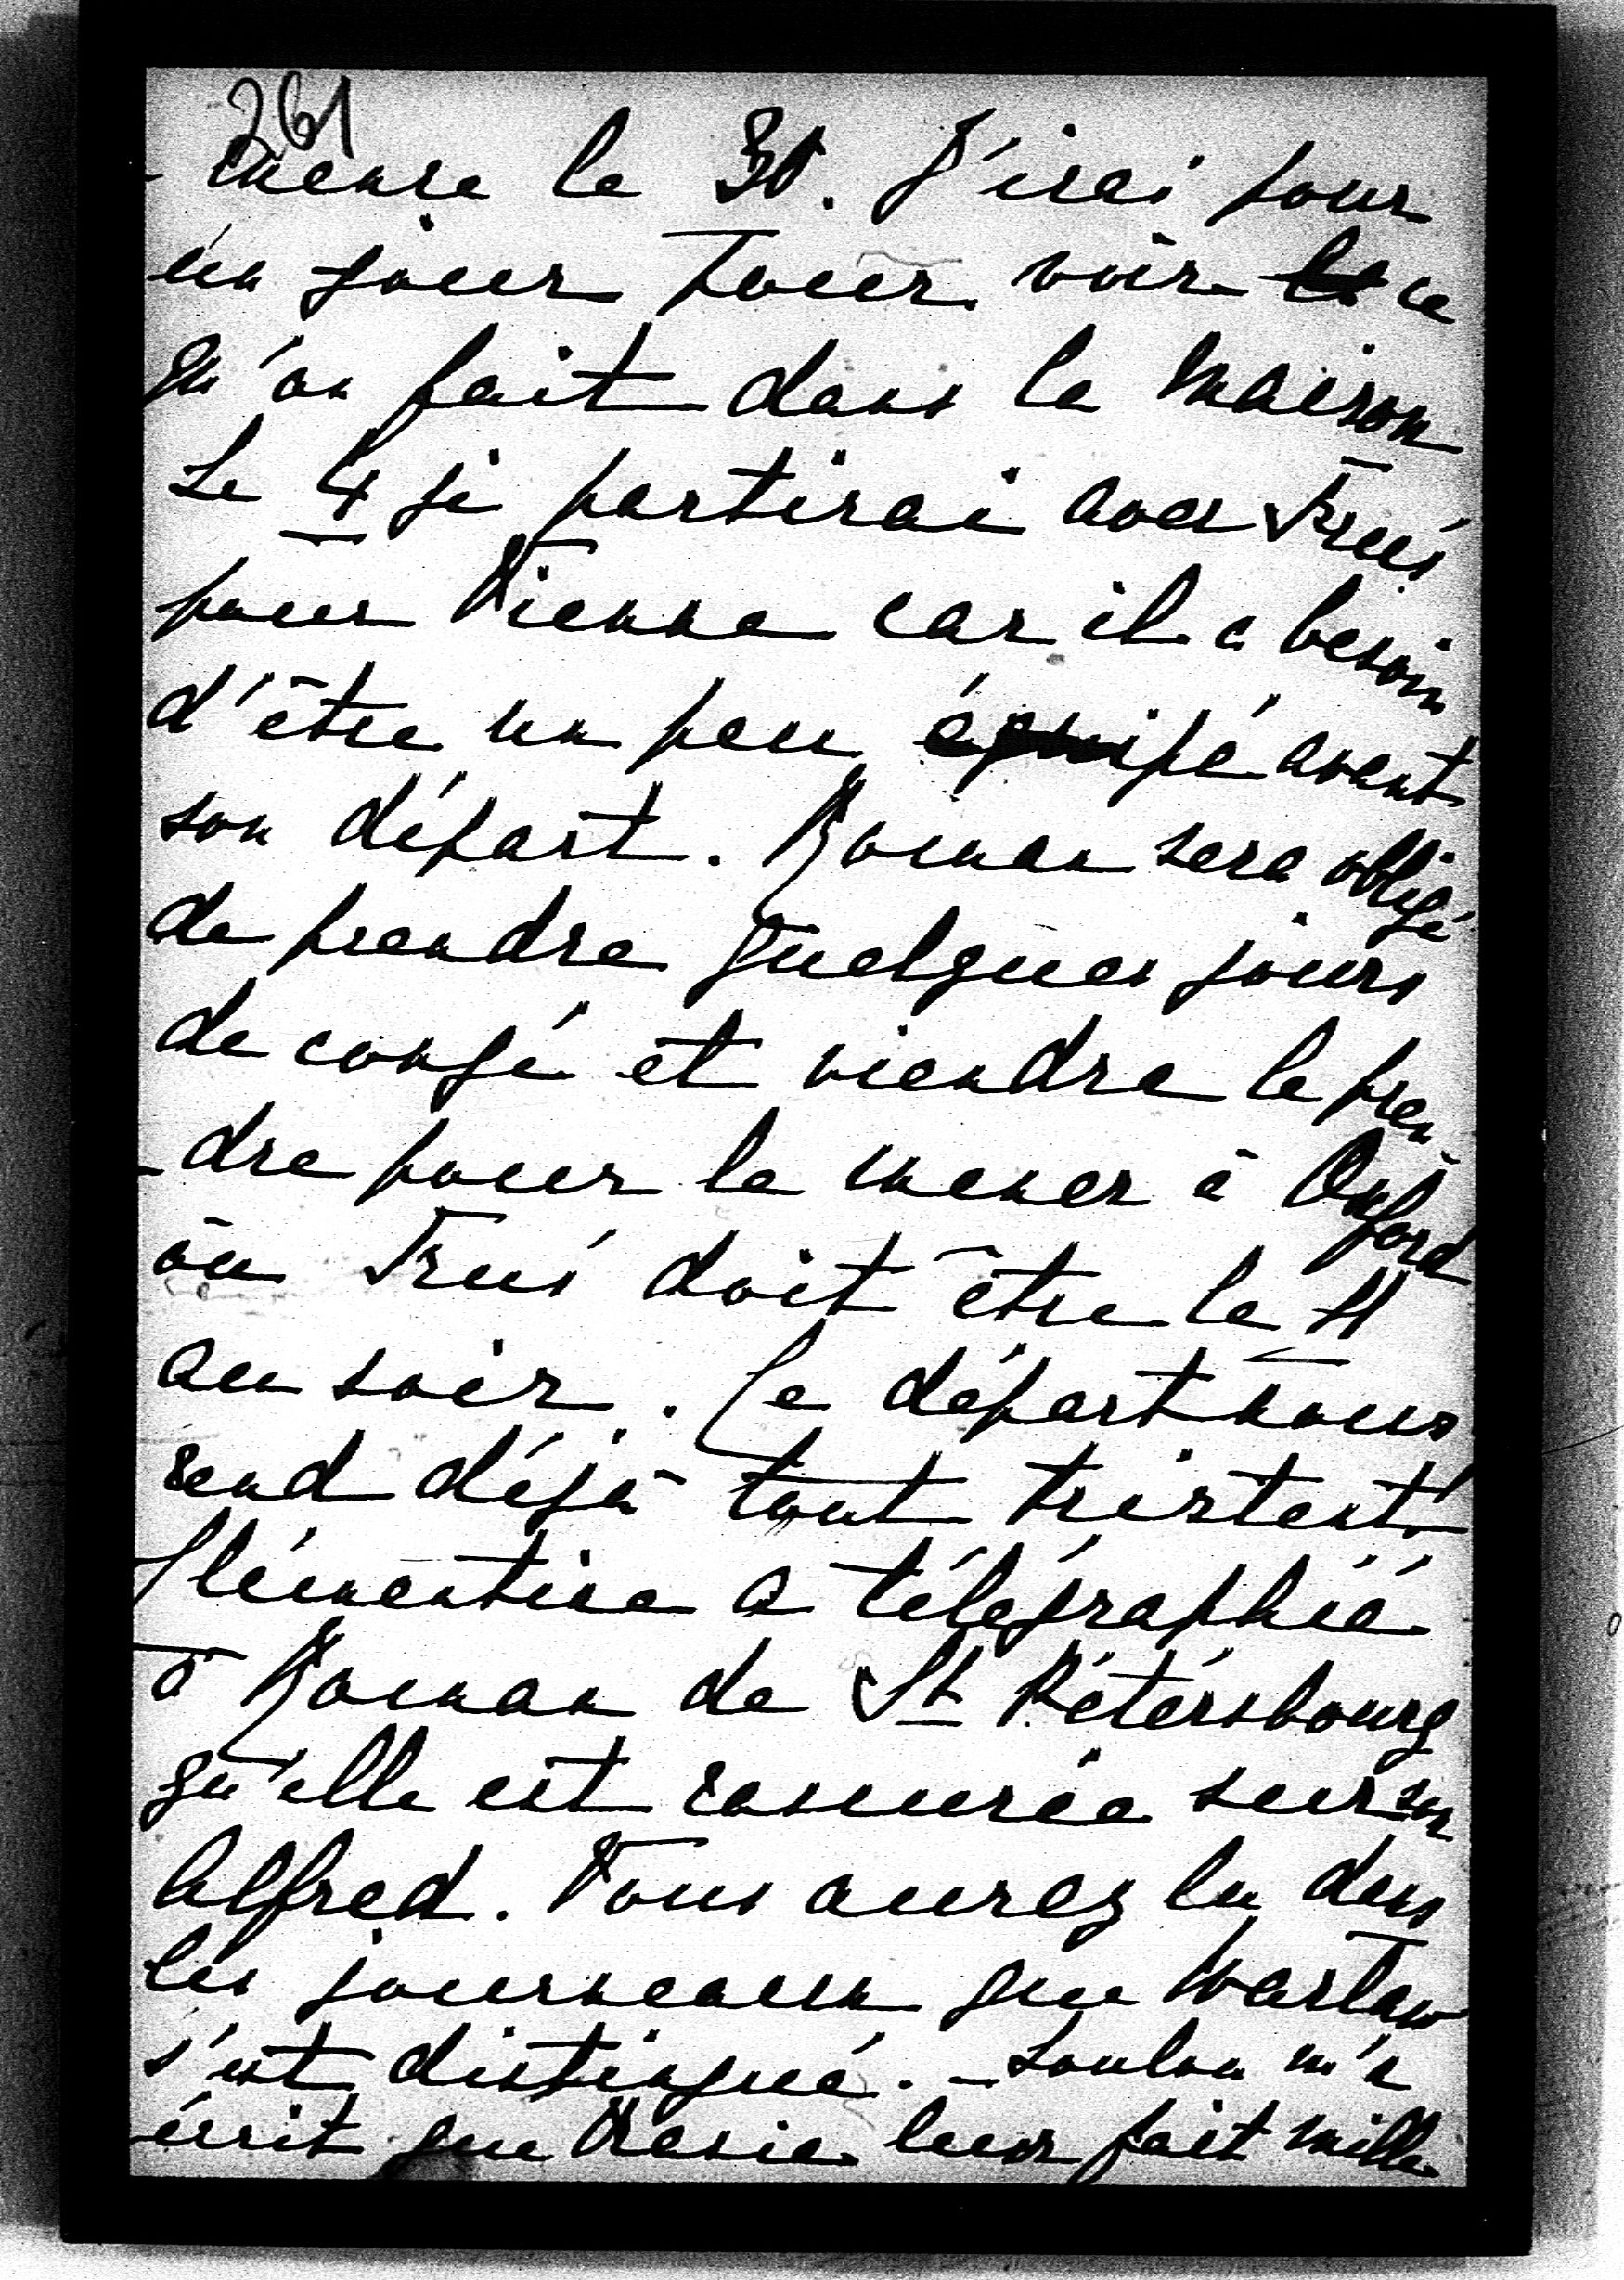 261
-mence le 30. J'irai pour
un jour pour voir ce
qu'on fait dans la maison
Le 4 je partirai avec
pour Vienne car il a besoin
d'être un peu équipé avant
son départ. Roman sera obligé
de prendre quelques jours
de congé et viendra le pren
-dre pour le mener à Oxford
où doit être le 11
au soir. Ce départ nous
rend déjà tout tristent.
Clémentine a télégraphié
à Roman de St Pétérsbourg
qu'elle est rassurée sur son
Alfred. Vous aurez lu dans
les journeaux que
s'est distingué. - Loulou m'a
écrit que leur fait mille